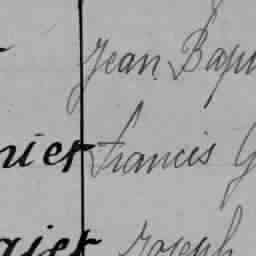 Jean Bap
nier Francis G
gier Joseph